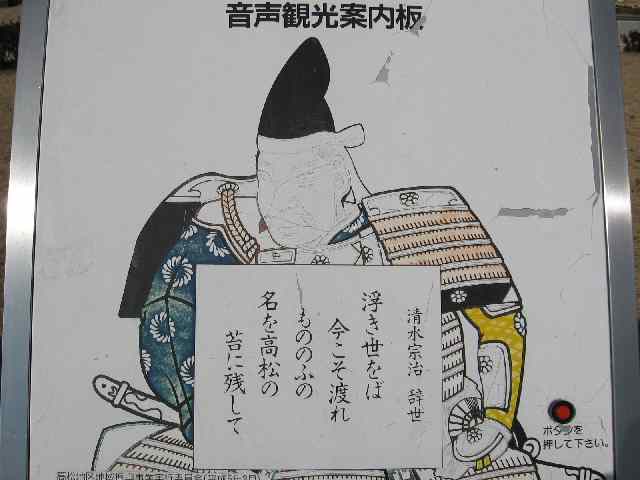 音声観光案内板
清水宗治 辞世
浮き世をば
今こそ渡れ
もののふの
名を高松の
苔に残して
ボタンを
押して下さい。